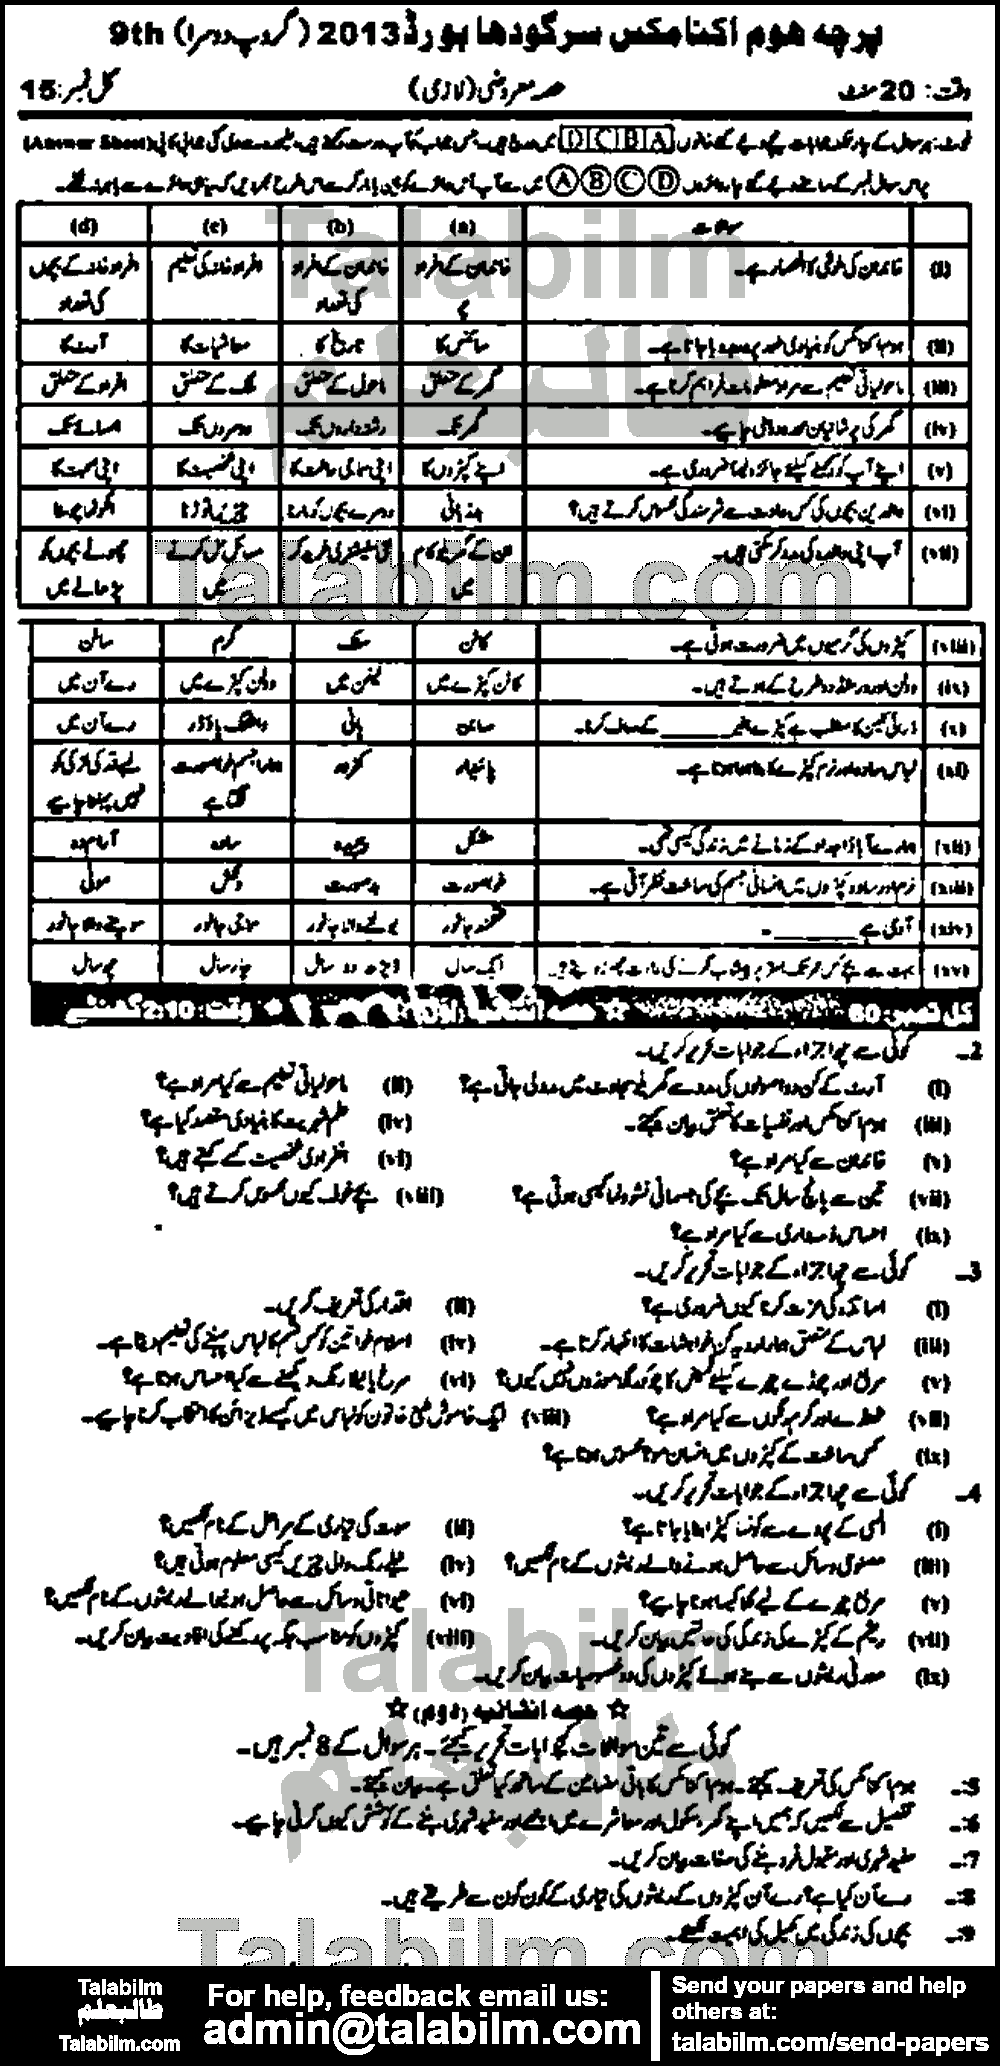 پرچہ ھوم اکنامکس سرگودھا بورڈ 2013 (گروپ دوسرا) 9th
وقت: 20 منٹ حصہ معروضی (لازمی) کل نمبر: 15
(Answer Sheet) D C B A
A B C D
سوالات (a) (b) (c) (d)
(i) خاندان کی خوشی کا انحصار ہے۔ خاندان کے افراد پر خاندان کے افراد کی تعداد افراد خانہ کی تعلیم افراد خانہ کے بچوں کی تعداد
(ii) ہوم اکنامکس کو بنیادی طور پر درجہ دیا جاتا ہے۔ سائنس کا تاریخ کا معاشیات کا آرٹ کا
(iii) ماحولیاتی تعلیم سے مراد معلومات فراہم کرنا ہے۔ گھر کے متعلق ماحول کے متعلق ملک کے متعلق افراد کے متعلق
(iv) گھر کی پریشانیاں محدود رہنی چاہیے۔ گھر تک رشتہ داروں تک دوسروں تک ہمسائے تک
(v) اپنے آپ کو رکھنے کیلئے جائزہ لینا ضروری ہے۔ اپنے کپڑوں کا اپنی سماجی ساخت کا اپنی شخصیت کا اپنی صحت کا
(vi) والدین بچوں کی کس عادت سے شرمندگی محسوس کرتے ہیں؟ دوسرے بچوں کو مارنا چیزیں توڑنا انگوٹھا چوسنا
(vii) آپ اپنی والدہ کی مدد کر سکتی ہیں۔ ان کے گھریلو کام میں مسائل حل کرنے میں چھوٹے بچوں کو پڑھانے میں
(viii) کپڑوں کی گرمیوں میں ضرورت ہوتی ہے۔ کاٹن سلک گرم ساٹن
(ix) وولن اور ورسٹڈ دو طرح کے ہوتے ہیں۔ کاٹن کپڑے میں لینن میں وولن کپڑے میں رے آن میں
(x) ڈرائی کلین کا مطلب ہے کپڑے بغیر ______ کے صاف کرنا۔ صابن پانی واشنگ پاؤڈر رے آن میں
(xi) لباس سادہ اور نرم کپڑے کا ہے۔ پائیدار کمزور ہمارا جسم خوبصورت لگتا ہے لمبے قد کی لڑکی کو نہیں پہننا چاہیے
(xii) ہمارے آباؤ اجداد کے زمانے میں زندگی کیسی تھی۔ مشکل پیچیدہ سادہ آرام دہ
(xiii) نرم اور سادہ کپڑوں میں انسانی جسم کی ساخت نظر آتی ہے۔ خوبصورت بدصورت دلکش موٹی
(xiv) آدمی ہے ______ ۔ جانور بولنے والا جانور جانور سوچنے والا جانور
(xv) بہت سے بچے کس عمر تک بستر پر پیشاب کرنے کی عادت چھوڑ دیتے ہیں۔ ایک سال ڈیڑھ دو سال چار سال چھ سال
کل نمبر: 60 ☆ حصہ انشائیہ (اول) وقت: 2:10 گھنٹے
2۔ کوئی سے چھ اجزاء کے جوابات تحریر کریں۔
(i) آرٹ کے کن دو اصولوں کی مدد سے گھریلو سجاوٹ میں مدد لی جاتی ہے؟ (ii) ماحولیاتی تعلیم سے کیا مراد ہے؟
(iii) ہوم اکنامکس اور نفسیات کا تعلق بیان کیجئے۔ (iv) علم شہریت کا بنیادی مقصد کیا ہے؟
(v) خاندان سے کیا مراد ہے؟ (vi) انفرادی شخصیت کسے کہتے ہیں؟
(vii) تین سے پانچ سال تک بچے کی جسمانی نشوونما کیسی ہوتی ہے؟ (viii) بچے خوف کیوں محسوس کرتے ہیں؟
(ix) احساس ذمہ داری سے کیا مراد ہے؟
3۔ کوئی سے چھ اجزاء کے جوابات تحریر کریں۔
(i) اساتذہ کی عزت کرنا کیوں ضروری ہے؟ (ii) اقدار کی تعریف کریں۔
(iii) لباس کے متعلق ہمارا رویہ کن خواہشات کا اظہار کرتا ہے۔ (iv) اسلام خواتین کو کس قسم کا لباس پہننے کی تعلیم دیتا ہے۔
(v) مربع اور چوڑے چہرے کیلئے قمیض کا چوکور گلا موزوں نہیں کیوں؟ (vi) سرخ یا پیلا رنگ دیکھنے سے کیا احساس ہوتا ہے؟
(vii) ٹھنڈے اور گرم رنگوں سے کیا مراد ہے؟ (viii) ایک خاموش طبع خاتون کو لباس میں کیسے ڈیزائن کا انتخاب کرنا چاہیے۔
(ix) کس ساخت کے کپڑوں میں انسان موٹا محسوس ہوتا ہے؟
4۔ کوئی سے چھ اجزاء کے جوابات تحریر کریں۔
(i) السی کے پودے سے کونسا کپڑا بنایا جاتا ہے؟ (ii) سوت کی تیاری کے مراحل کے نام لکھیں؟
(iii) مصنوعی وسائل سے حاصل ہونے والے ریشوں کے نام لکھیں؟ (iv) نیلے رنگ والی چیزیں کیسی معلوم ہوتی ہیں؟
(v) مربع چہرے کے لیے گلا کیسا ہونا چاہیے؟ (vi) حیواناتی وسائل سے حاصل ہونیوالے ریشوں کے نام لکھیں؟
(vii) ریشم کے کیڑے کی زندگی کی حالتیں بیان کریں۔ (viii) کپڑوں کو مناسب جگہ پر رکھنے کی افادیت بیان کریں۔
(ix) معدنی ریشوں سے بنے ہوئے کپڑوں کی دو خصوصیات بیان کریں۔
☆ حصہ انشائیہ (دوم) ☆
کوئی سے تین سوالات کے جوابات تحریر کیجئے۔ ہر سوال کے 8 نمبر ہیں۔
5:۔ ہوم اکنامکس کی تعریف کیجئے۔ ہوم اکنامکس کا باقی مضامین کے ساتھ کیا تعلق ہے۔ بیان کیجئے۔
6:۔ تفصیل سے لکھیں کہ ہمیں اپنے گھر، سکول اور معاشرے میں اچھے اور مفید شہری بننے کے کوشش کیوں کرنی چاہیے۔
7:۔ مفید شہری اور مقبول فرد بننے کی صفات بیان کریں۔
8:۔ رے آن کیا ہے؟ رے آن کپڑوں کے ریشوں کی تیاری کے کون کون سے طریقے ہیں۔
9:۔ بچوں کی زندگی میں کھیل کی اہمیت لکھیے۔
Talabilm
طالبعلم
Talabilm.com
Talabilm
طالبعلم
Talabilm.com
Talabilm
طالبعلم
Talabilm.com
For help, feedback email us:
admin@talabilm.com
Send your papers and help
others at:
talabilm.com/send-papers